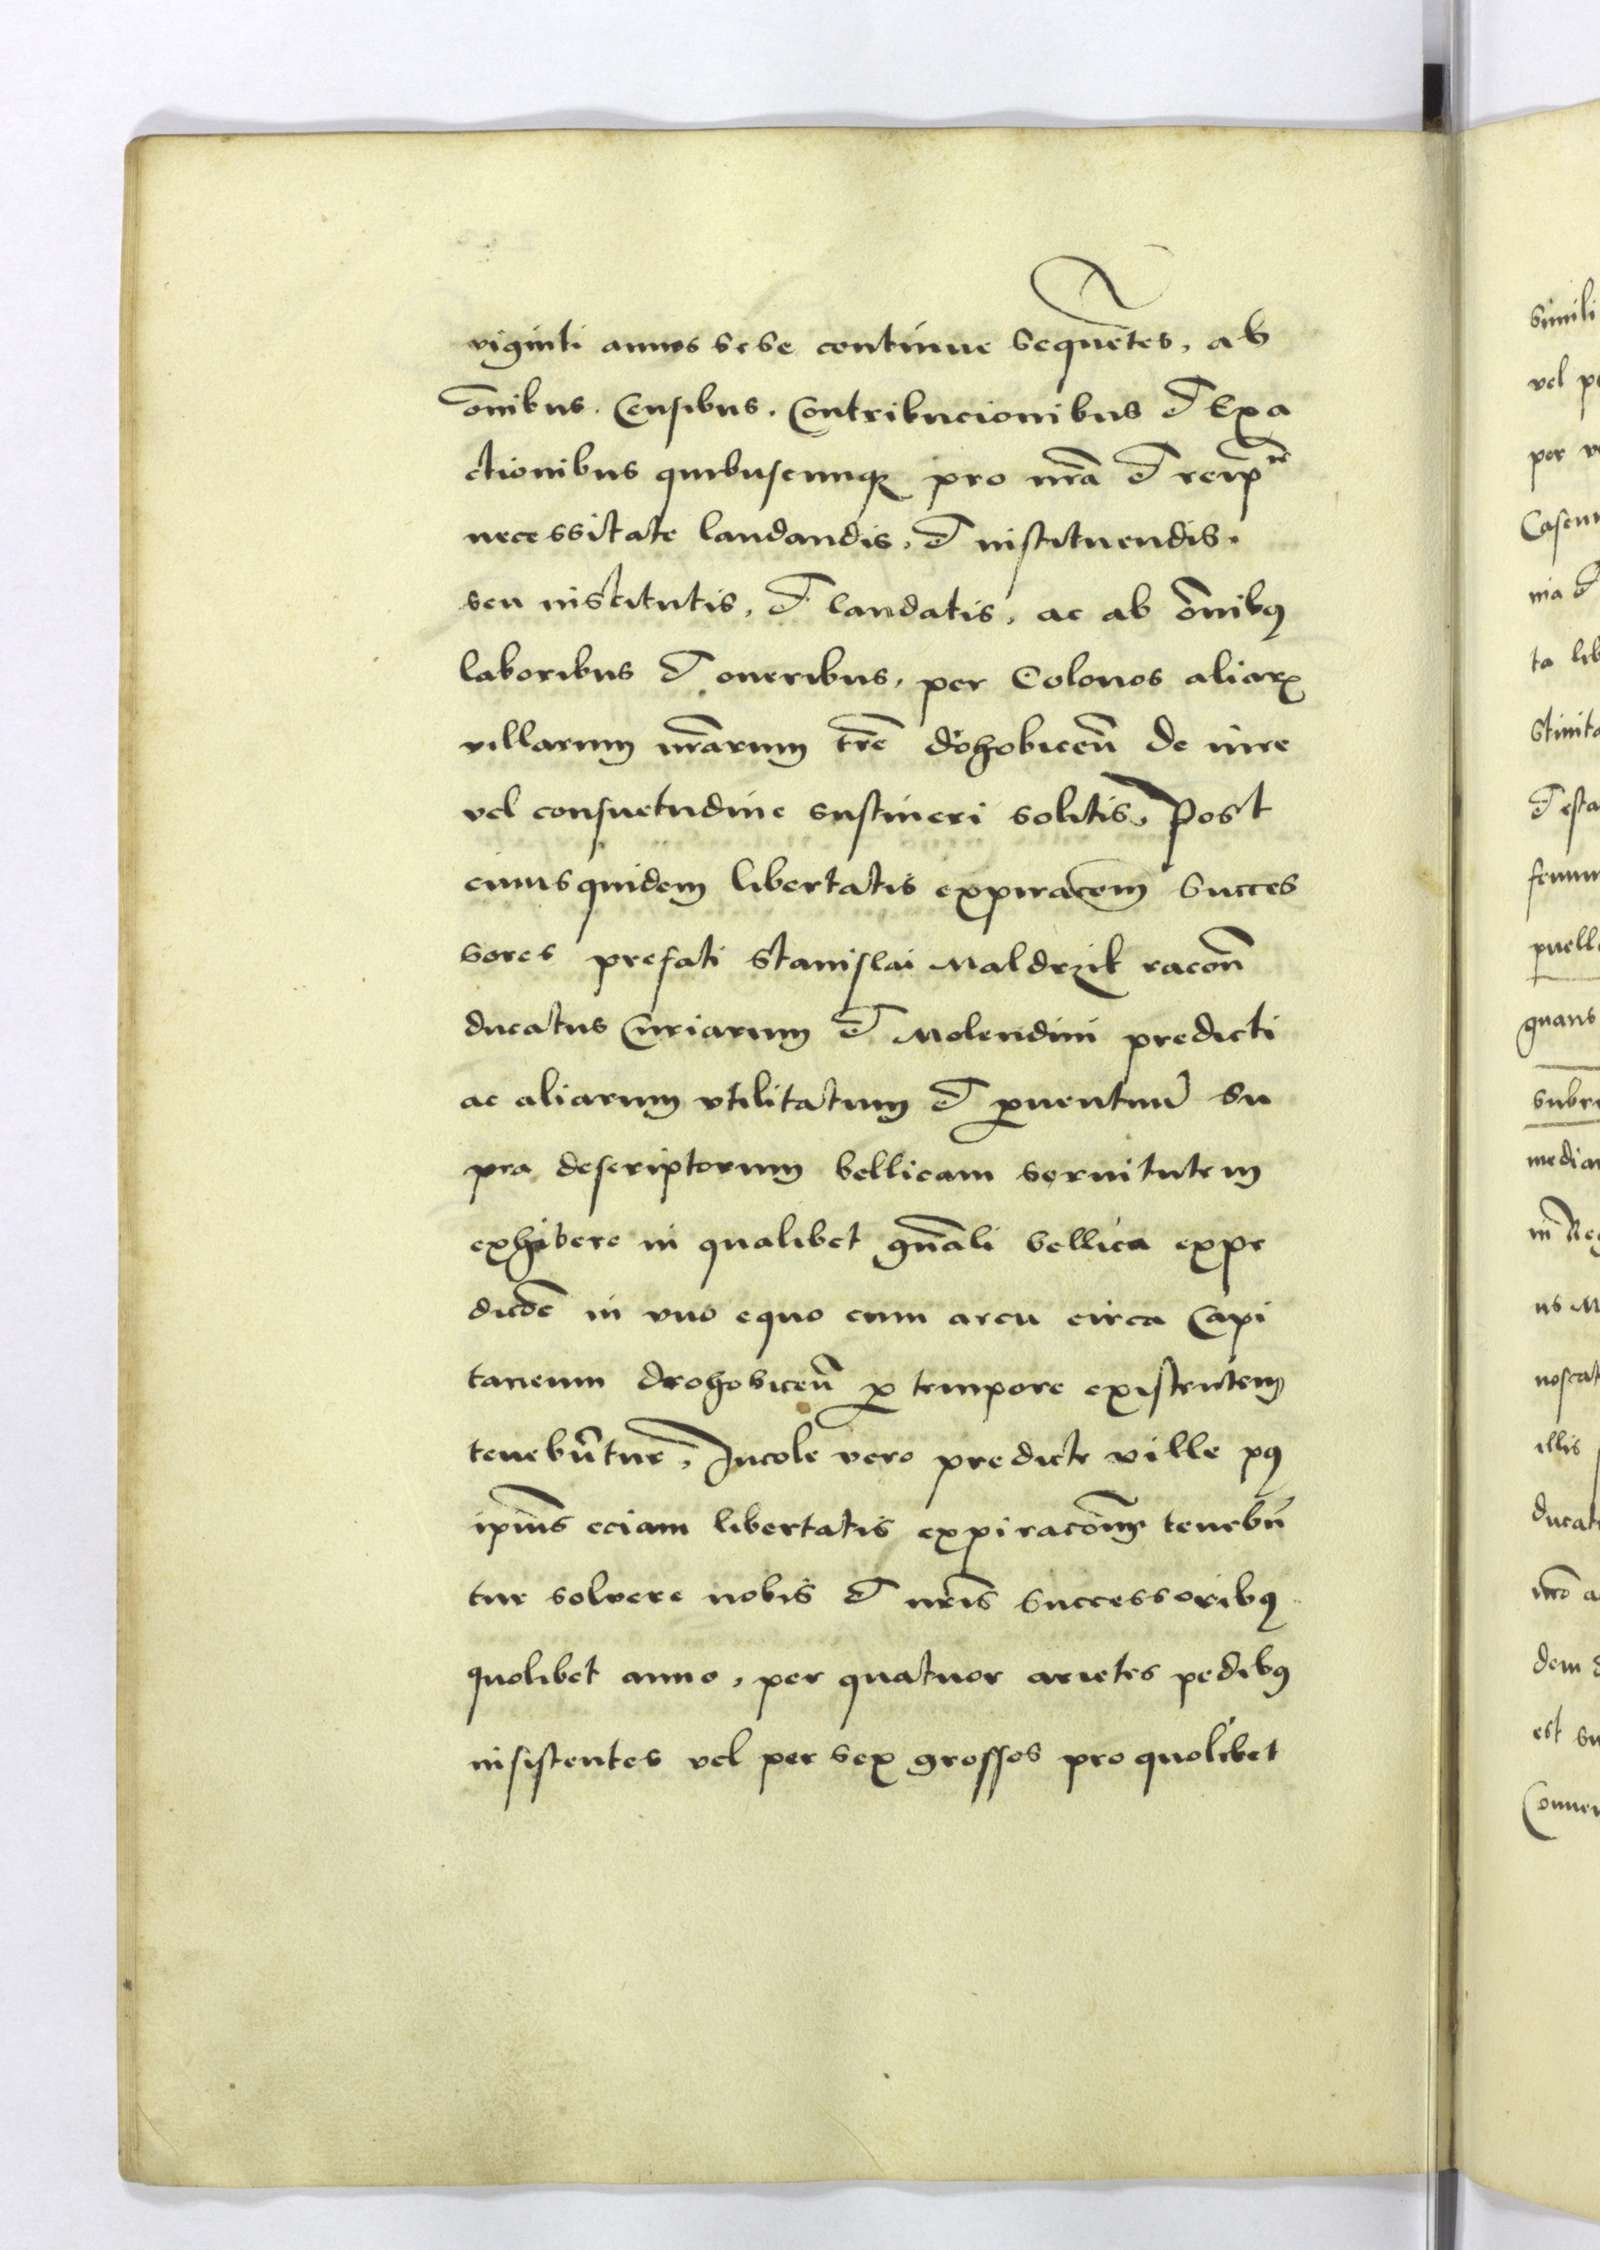 viginti annos sese continue sequētes, ab
om̄ibus. Censibus. Contribucionibus et Exa
ctionibus quibuscunqꝫ pro nr̄a et reip̄ce
necessitate laudandis, et instituendis.
seu institutis, et laudatis, ac ab om̄ibꝰ
laboribus et oneribus, per Colonos aliarꝝ
villarum nr̄arum tr̄e drohobiceñ de iure
vel consuetudine sustineri solitis, Post
cuiusquidem libertatis expiracōem Succes
sores prefati Stanislai Maldrzik racoñ
ducatus Curiarum et Molendini predicti
ac aliarum vtilitatum et ꝓuentuū Su
pra descriptorum bellicam seruitutem
exhibere in qualibet gn̄ali bellica expe
dicōe in vno equo cum arcu circa Capi
taneum drohobiceñ ꝓ tempore existentem
tenebūtur, Incole vero predicte ville pꝰ
ip̄ius eciam libertatis expiracōem tenebū
tur soluere nobis et nr̄is Successoribꝰ
quolibet anno, per quatuor arietes pedibꝰ
insistentes vel per sex grossos pro quolibet
Simili
vel
per
nia et
ta
puell
guans
subr
media
illis
ducat
dem
est